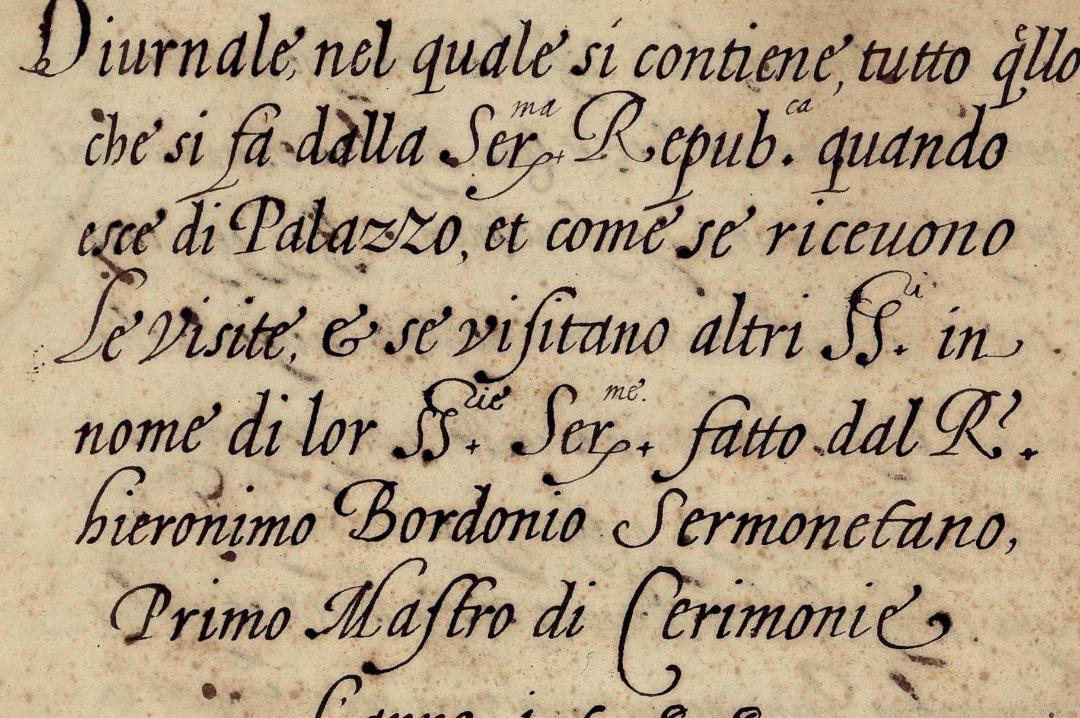 Diurnale, nel quale si contiene, tutto q̊llo,
che si fa dalla Ser.ma Repub.ca quando
esce di Palazzo, et come se riceuono
Le visite, & se viſitano altri SS.ri in
nome di lor SS.rie Ser.me. fatto dal R.º
hieronimo Bordonio Sermonetano,
Primo Maſtro di Cerimonie